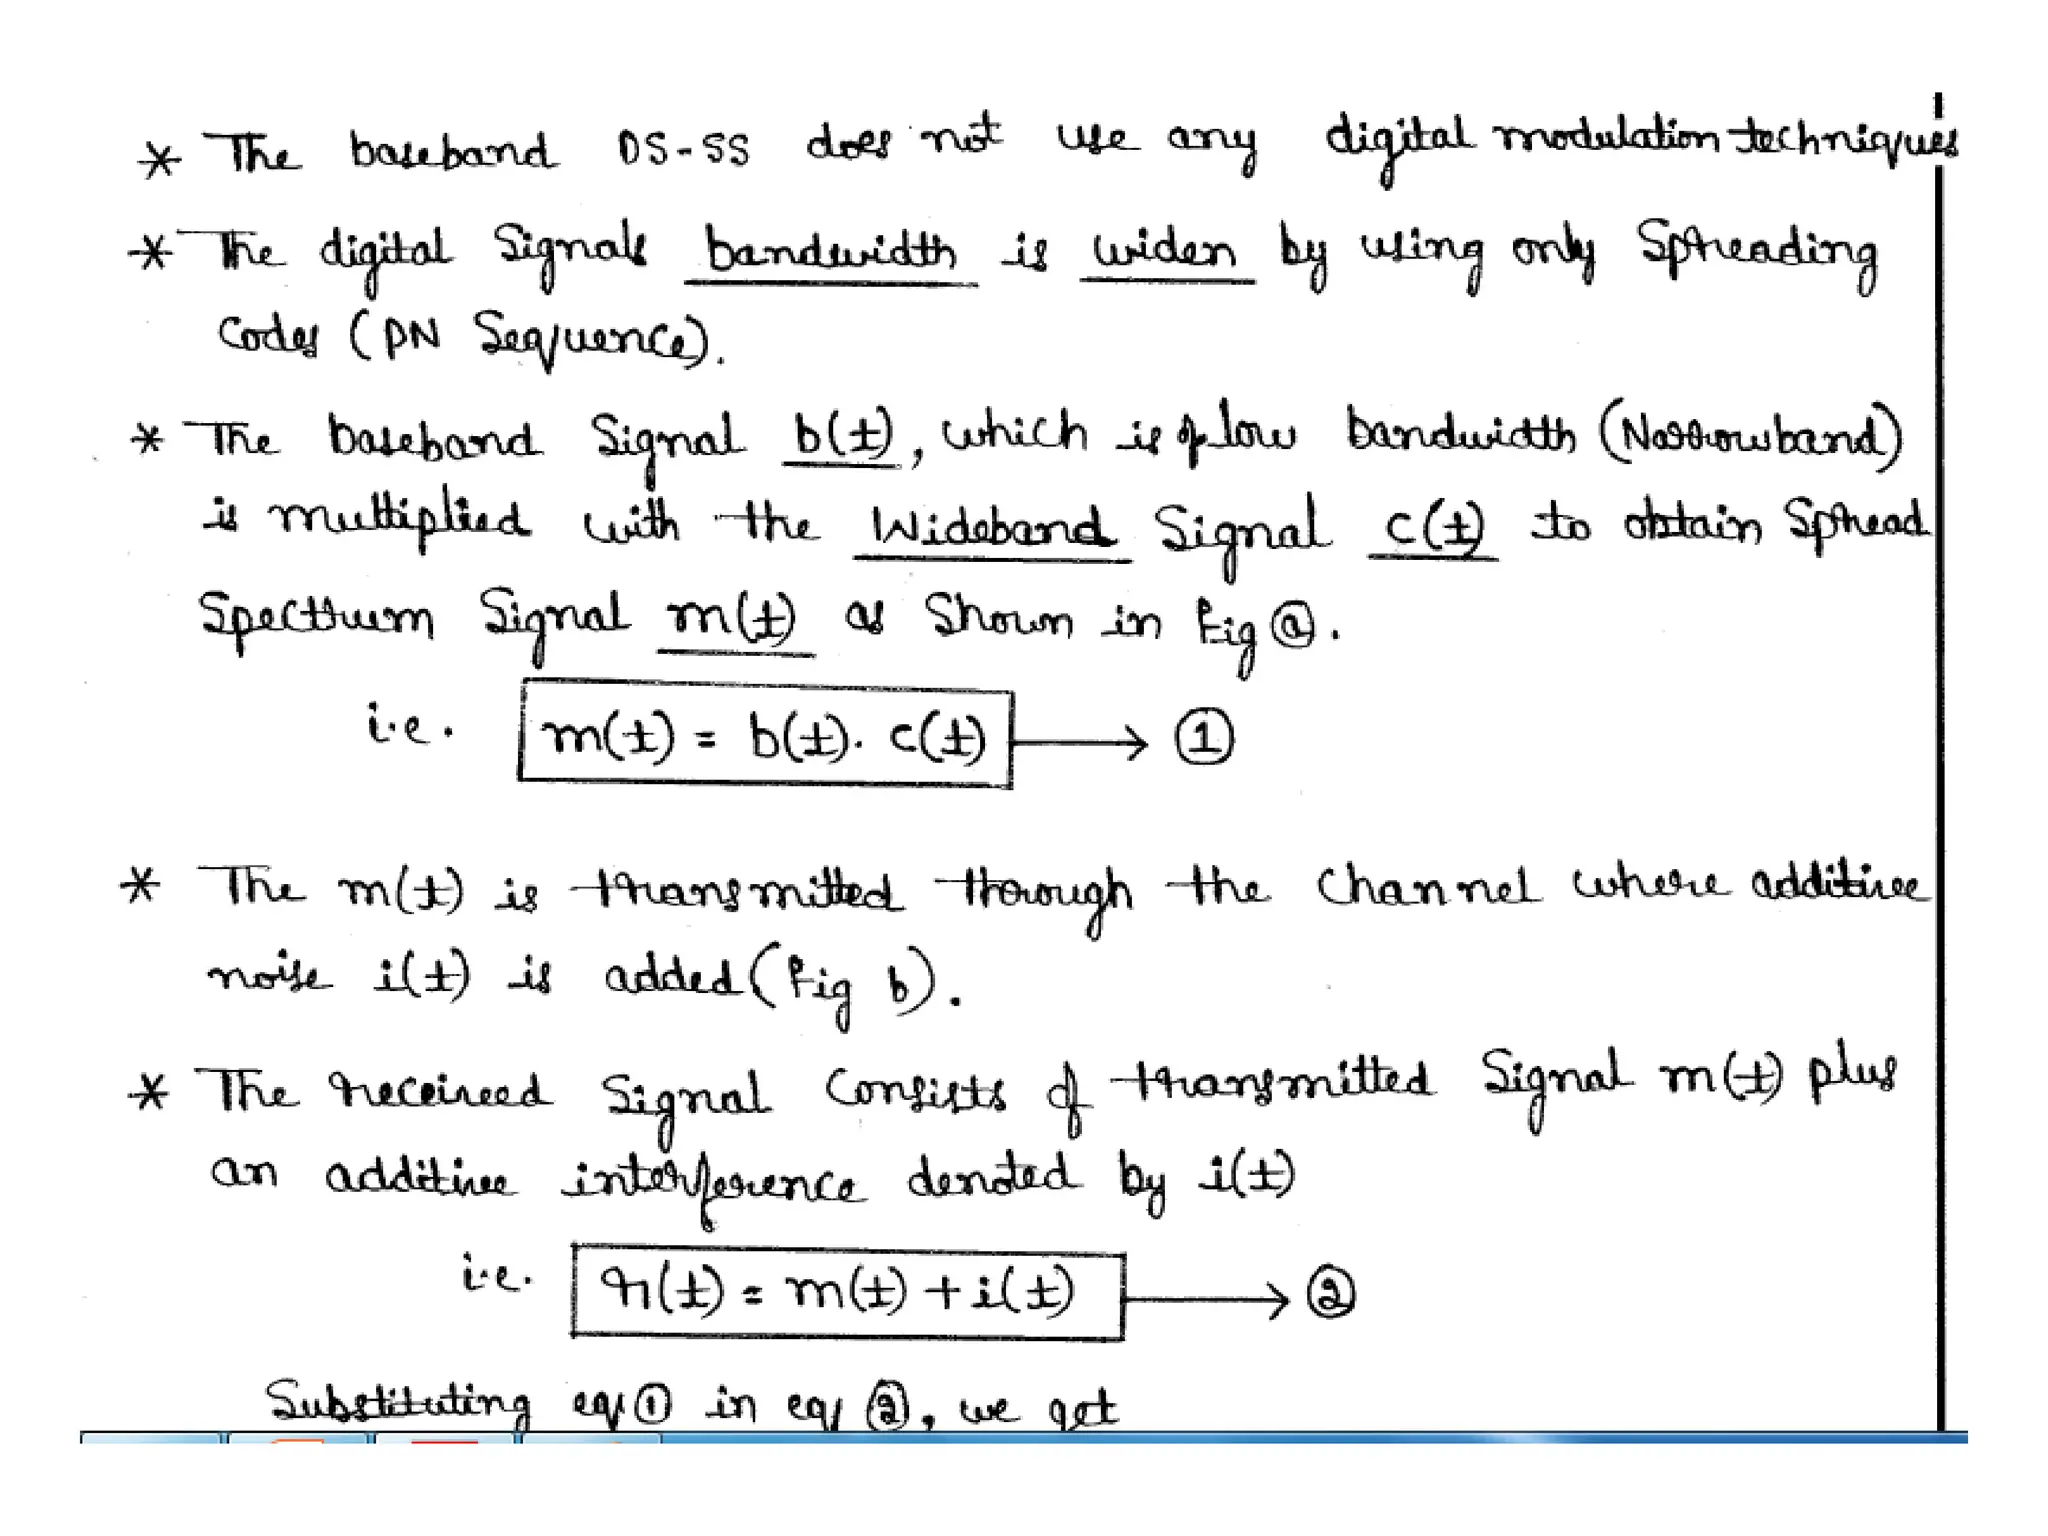 * The baseband DS-SS does not use any digital modulation techniques
* The digital Signals bandwidth is widen by using only Spreading
Codes (PN Sequence).
* The baseband Signal b(t), which is of low bandwidth (Narrowband)
is multiplied with the Wideband Signal c(t) to obtain Spread
Spectrum Signal m(t) as Shown in fig ⓐ.
i.e. m(t) = b(t). c(t) → ①
* The m(t) is transmitted through the Channel where additive
noise i(t) is added (fig b).
* The received Signal Consists of transmitted Signal m(t) plus
an additive interference denoted by i(t)
i.e. r(t) = m(t) + i(t) → ②
Substituting eq ① in eq ②, we get